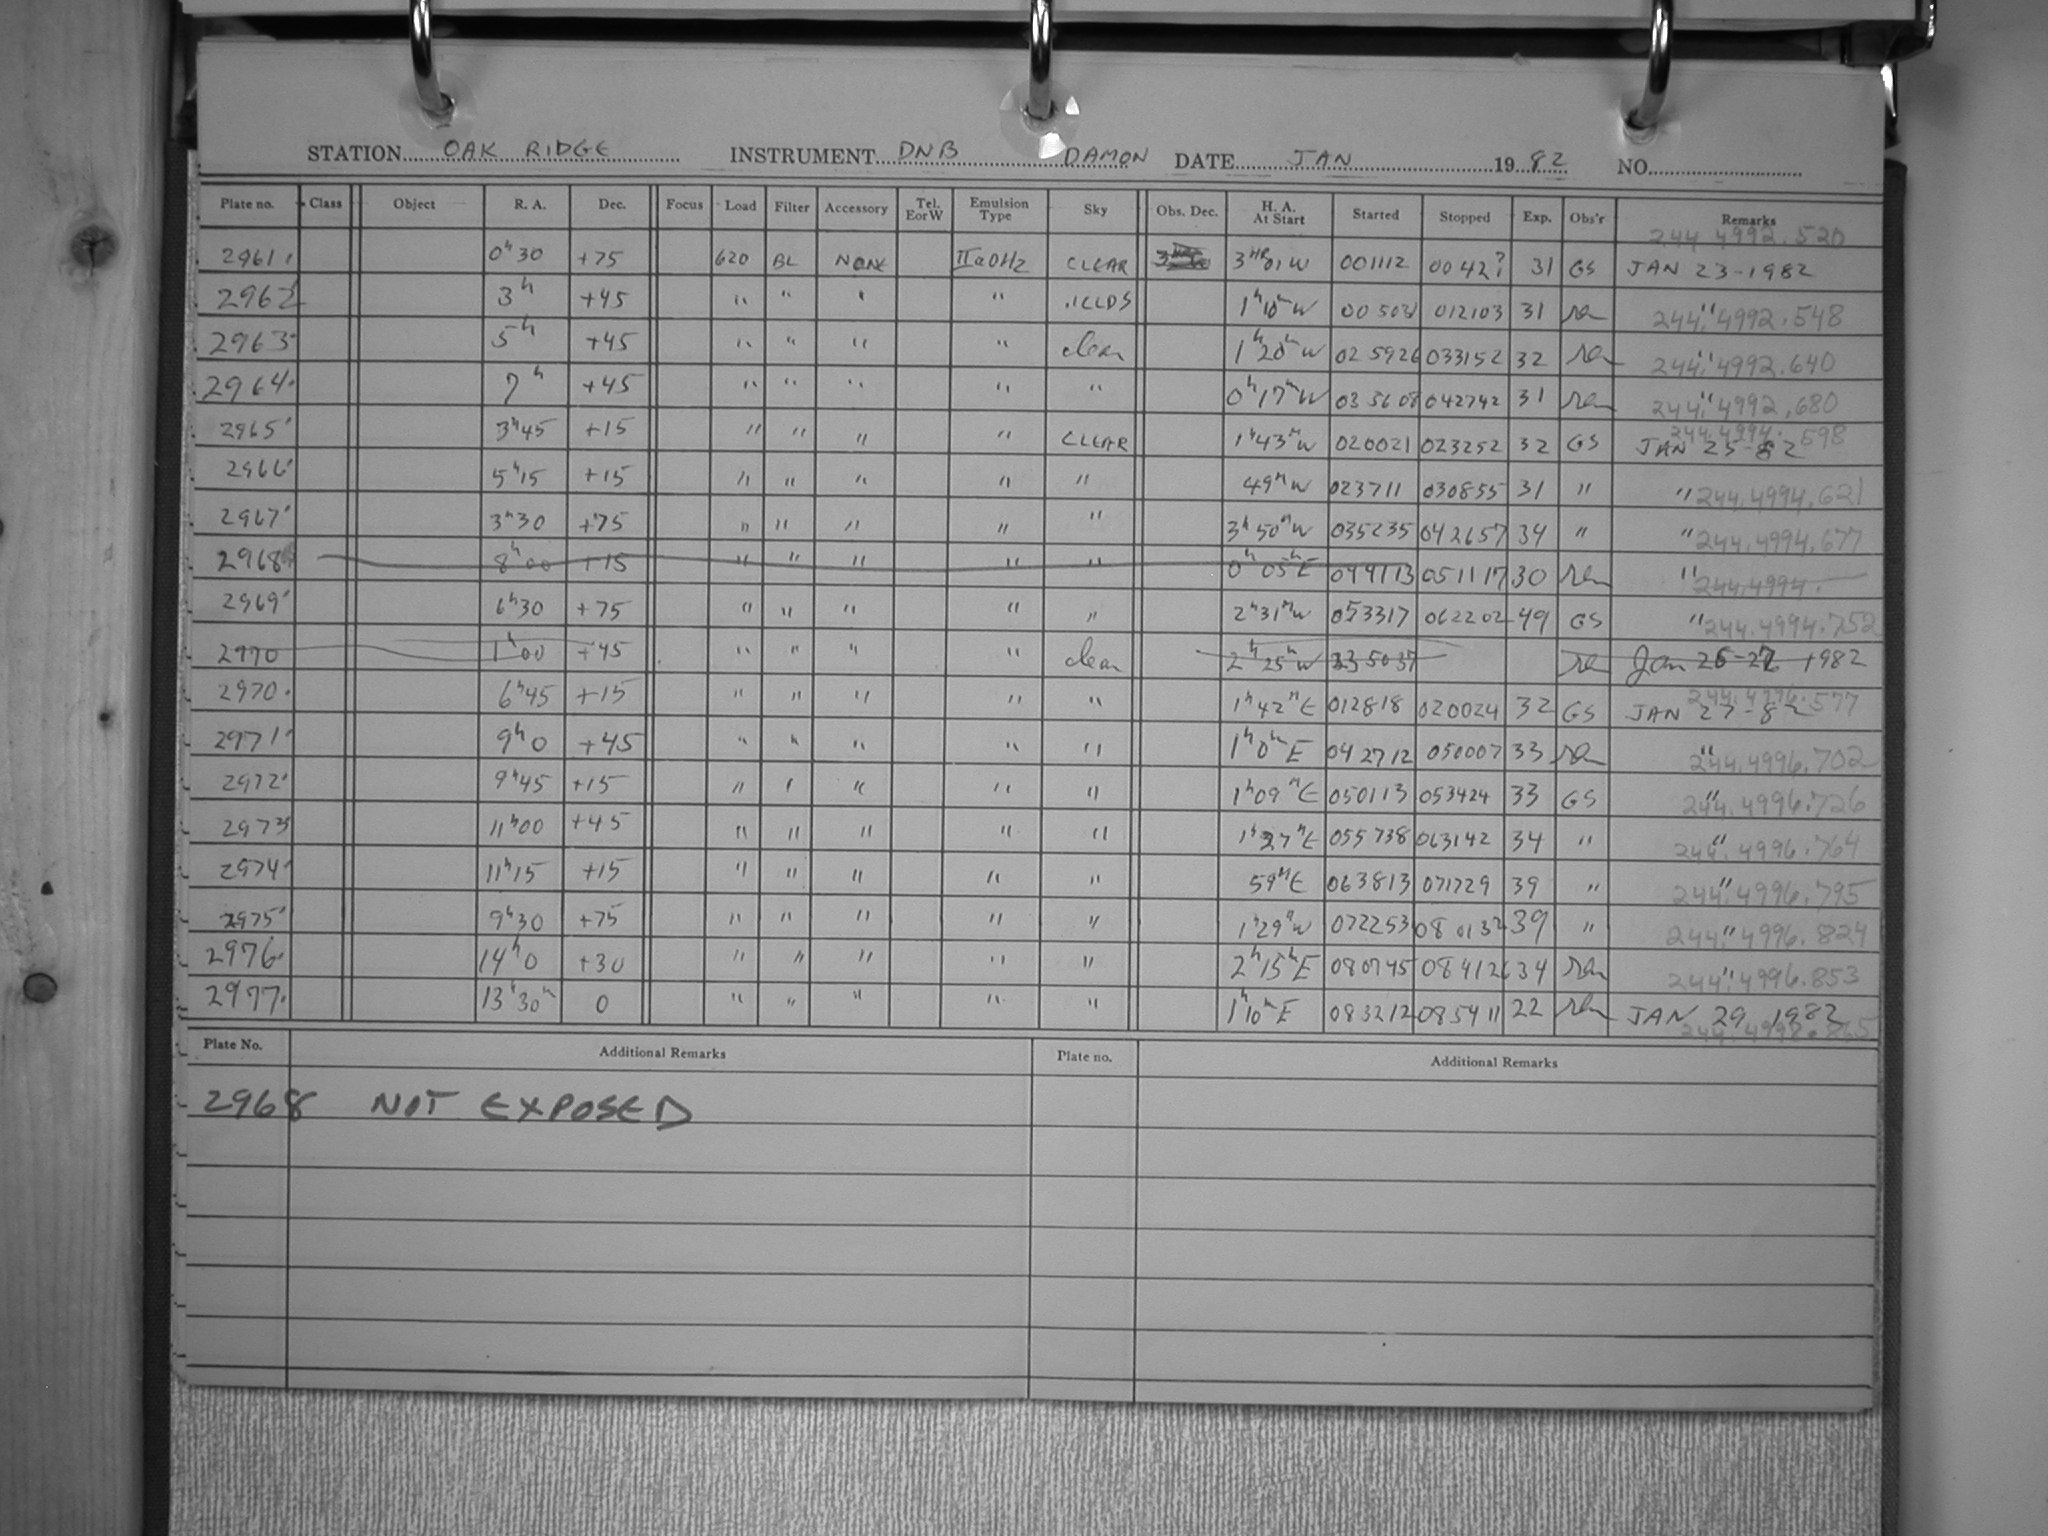 STATION OAK RIDGE INSTRUMENT DNB DAMON DATE JAN 1982 NO.
Plate no. Class Object R. A. Dec. Focus Load Filter Accessory Tel. E or W Emulsion Type Sky Obs. Dec. H. A. At Start Started Stopped Exp. Obs'r Remarks
244 4992.520
2961 0h30 +75 620 BL NONE IIaOHZ CLEAR 3HR01W 001112 0042? 31 GS JAN 23-1982
2962 3h +45 " " " " .1CLDS 1h10mW 00503 012103 31 " 244 4992.548
2963 5h +45 " " " " clear 1h20mW 025926 033152 32 " 244 4992.640
2964 7h +45 " " " " " 0h17mW 035608 042742 31 " 244 4992.680
244 4994.598
2965 3h45 +15 " " " " CLEAR 1h43MW 020021 023252 32 GS JAN 25-82
2966 5h15 +15 " " " " " 49MW 023711 030855 31 " " 244 4994.621
2967 3h30 +75 " " " " " 3h50MW 035235 042657 34 " " 244.4994.677
2968 8h00 +15 " " " " " 0h05mE 044113 051117 30 " 244.4994.
2969 6h30 +75 " " " " " 2h31MW 053317 062202 49 GS " 244.4994.752
2970 1h00 +45 " " " " clear 2h25mW 335037 Jan 26-27 1982
244.4996.577
2970 6h45 +15 " " " " " 1h42ME 012818 020024 32 GS JAN 27-82
2971 9h0 +45 " " " " " 1h0mE 042712 050007 33 " 244.4996.702
2972 9h45 +15 " " " " " 1h09ME 050113 053424 33 GS " 244.4996.726
2973 11h00 +45 " " " " " 1h27ME 055738 063142 34 " " 244.4996.764
2974 11h15 +15 " " " " " 59ME 063813 071729 39 " " 244.4996.795
2975 9h30 +75 " " " " " 1h29MW 072253 080132 39 " " 244.4996.824
2976 14h0 +30 " " " " " 2h15mE 080745 084126 34 " 244.4996.853
2977 13h30m 0 " " " " " 1h10mE 083212 085411 22 JAN 29 1982
Plate No. Additional Remarks Plate no. Additional Remarks
2968 NOT EXPOSED